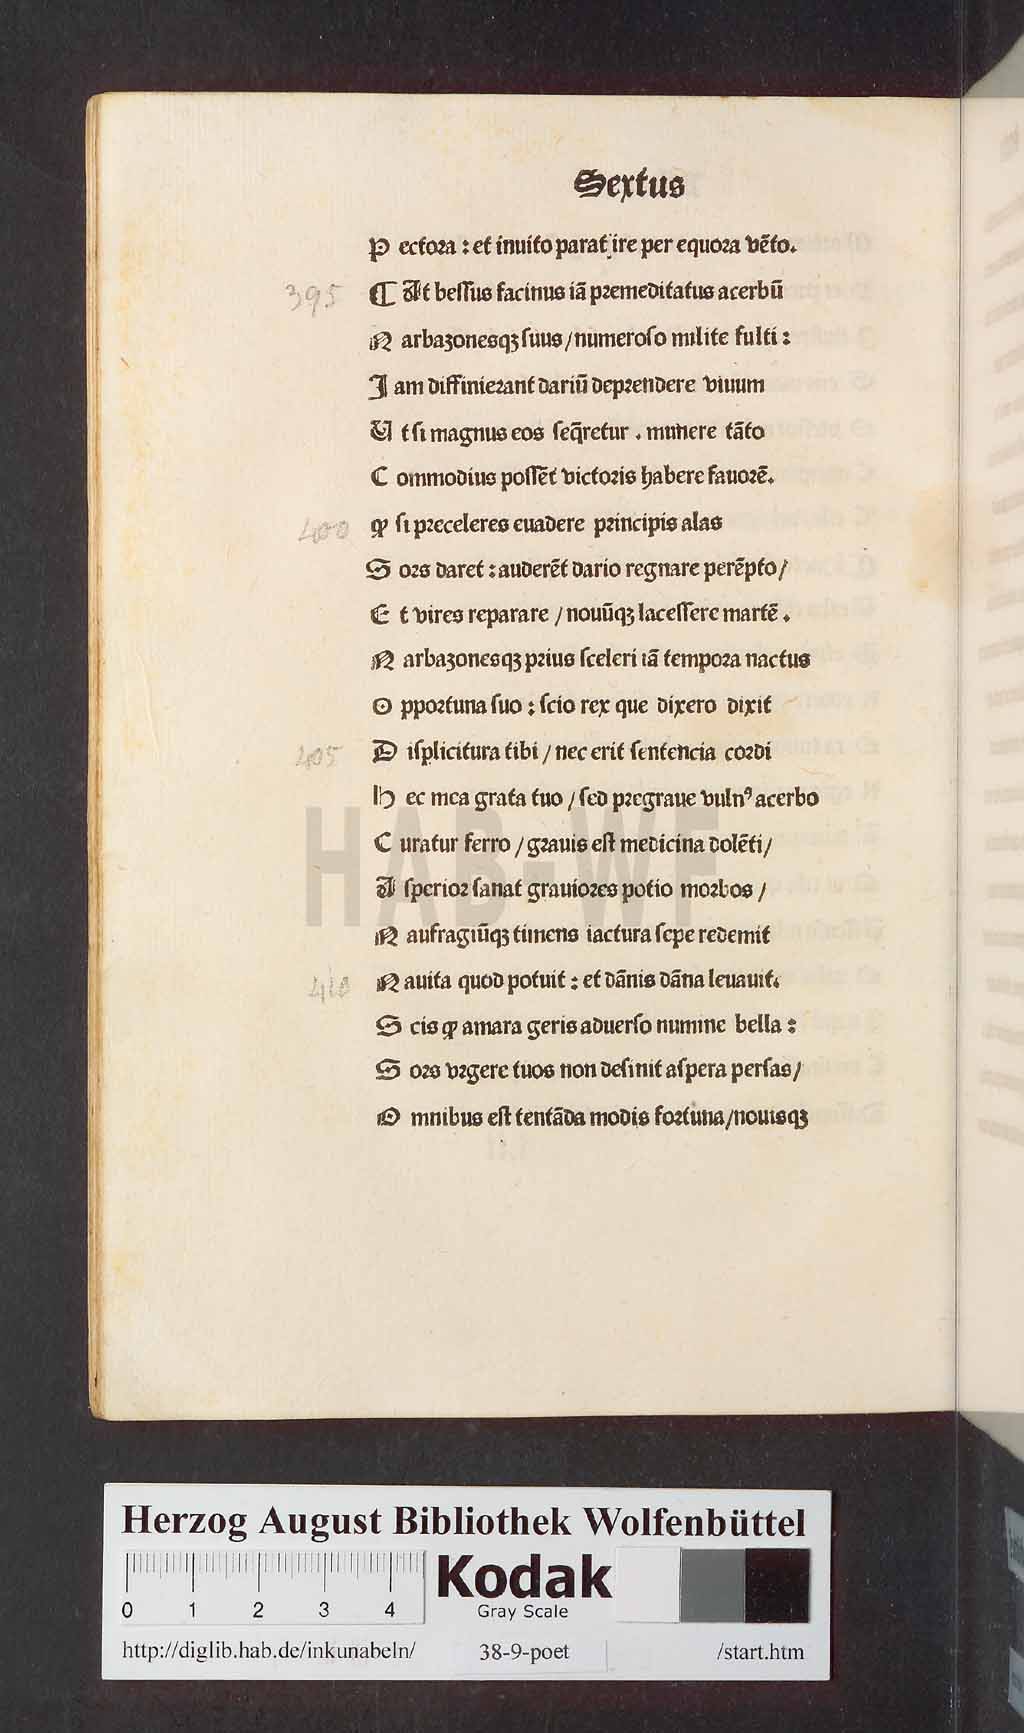 Sextus
P ectora : et inuito parat ire per equora vēto.
395 ¶ At bessus facinus iā premeditatus acerbū
N arbazonesqꝫ suus / numeroso milite fulti :
I am diffinierant dariū deprendere viuum
U t si magnus eos seq̄retur . munere tāto
C ommodius possēt victoris habere fauorē.
400 ꝙ si preceleres euadere principis alas
S ors daret : auderēt dario regnare perēpto /
E t vires reparare / nouūqꝫ lacessere martē .
N arbazonesqꝫ prius sceleri iā tempora nactus
O pportuna suo : scio rex que dixero dixit
405 D isplicitura tibi / nec erit sentencia cordi
H ec mea grata tuo / sed pregraue vulnꝰ acerbo
C uratur ferro / grauis est medicina dolēti /
A sperior sanat grauiores potio morbos /
N aufragiūqꝫ timens iactura sepe redemit
410 N auita quod potuit : et dānis dāna leuauit.
S cis ꝙ amara geris aduerso numine bella :
S ors vrgere tuos non desinit aspera persas /
O mnibus est tentāda modis fortuna / nouisqꝫ
HAB-WF
Herzog August Bibliothek Wolfenbüttel
0 1 2 3 4
Kodak
Gray Scale
http://diglib.hab.de/inkunabeln/ 38-9-poet /start.htm